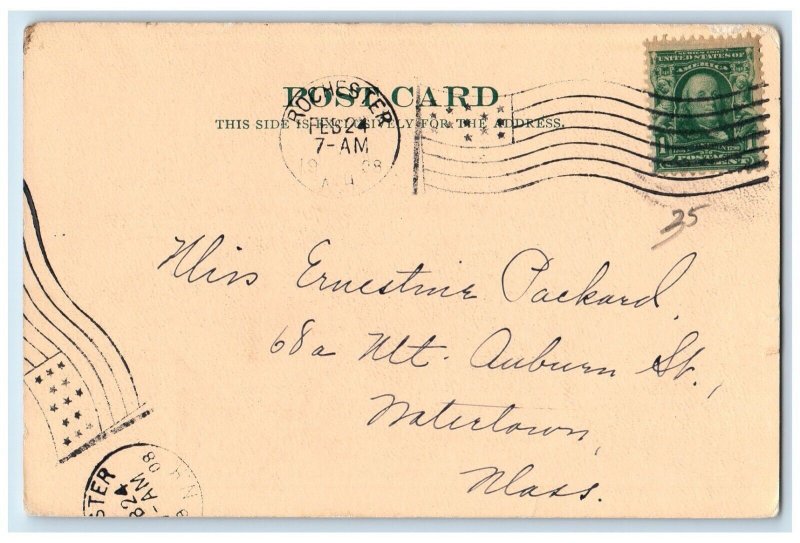 POST CARD
THIS SIDE IS EXCLUSIVELY FOR THE ADDRESS.
ROCHESTER
FEB 24
7-AM
1908
N.H.
SERIES 1902
UNITED STATES OF
AMERICA
POSTAGE
35
Miss Ernestine Packard,
68a Mt. Auburn St.,
Watertown,
Mass.
STER
B 24
-AM
08
N.H.